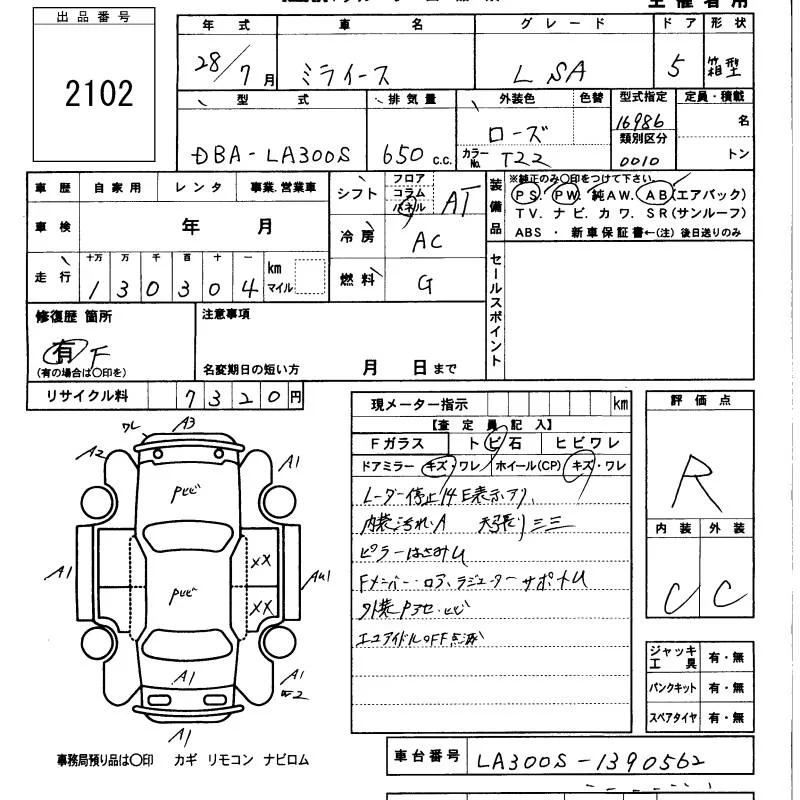 出品番号
2102
年式 車名 グレード ドア 形状
28/7月 ミライース L SA 5 箱型
型式 排気量 外装色 色替 型式指定 定員・積載
DBA-LA300S 650 c.c. ローズ 16986 名
カラーNo. T22 類別区分 0010 トン
車歴 自家用 レンタ 事業.営業車
車検 年 月
走行 十万 万 千 百 十 一 km マイル
1 3 0 3 0 4
シフト フロア コラム パネル AT
冷房 AC
燃料 G
装備品
※純正のみ〇印をつけて下さい。
PS. PW. 純AW. AB(エアバック)
TV. ナビ. カワ. SR(サンルーフ)
ABS ・ 新車保証書←(注) 後日送りのみ
セールスポイント
修復歴 箇所
有 F
(有の場合は〇印を)
注意事項
名変期日の短い方 月 日まで
リサイクル料 7320円
現メーター指示 km
【査定員記入】
Fガラス トビ石 ヒビワレ
ドアミラー キズ・ワレ ホイール(CP) キズ・ワレ
レーダー停止14E表示アリ,
内装汚れ.A 天張りミミ
ピラーはさみU
Fメンバー・コア、ラジエーターサポートU
外装Pヨセ・ヒビ
エコアイドルOFF点滅
評価点
R
内装 外装
C C
ジャッキ 工具 有・無
パンクキット 有・無
スペアタイヤ 有・無
ワレ A3
A2 A1
Pヒビ
A1 XX AU1
Pヒビ XX
A1 A1
A1
事務局預り品は〇印 カギ リモコン ナビロム
車台番号 LA300S-1390562